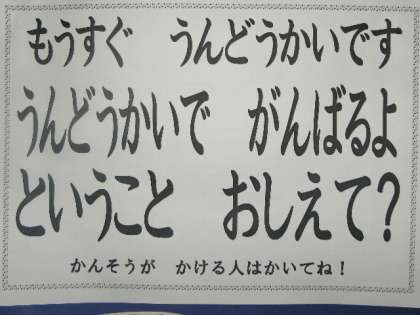 もうすぐ　うんどうかいです
うんどうかいで　がんばるよ
ということ　おしえて？
かんそうが　かける人はかいてね！